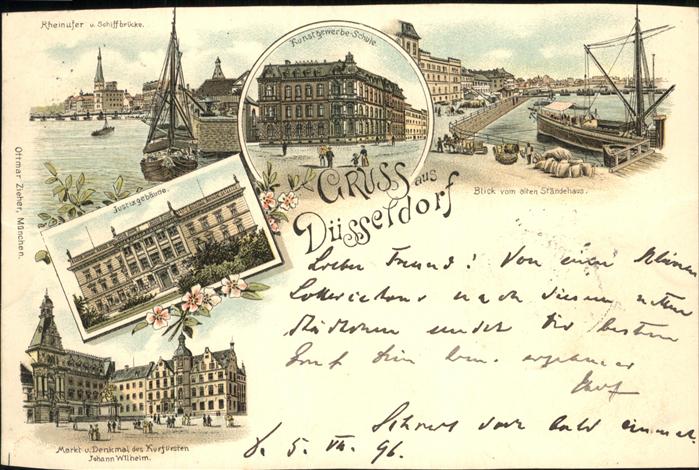 Rheinufer u. Schiffbrücke.
Kunstgewerbe-Schule.
Blick vom alten Ständehaus.
Justizgebäude.
Ottmar Zieher, München.
GRUSS aus
Düsseldorf
Lieber Freund! Von einer kleinen
nach diesem netten
Städtchen sendet die besten
Schreib doch bald einmal.
5. VII. 96.
Markt u. Denkmal des Kurfürsten
Johann Wilhelm.